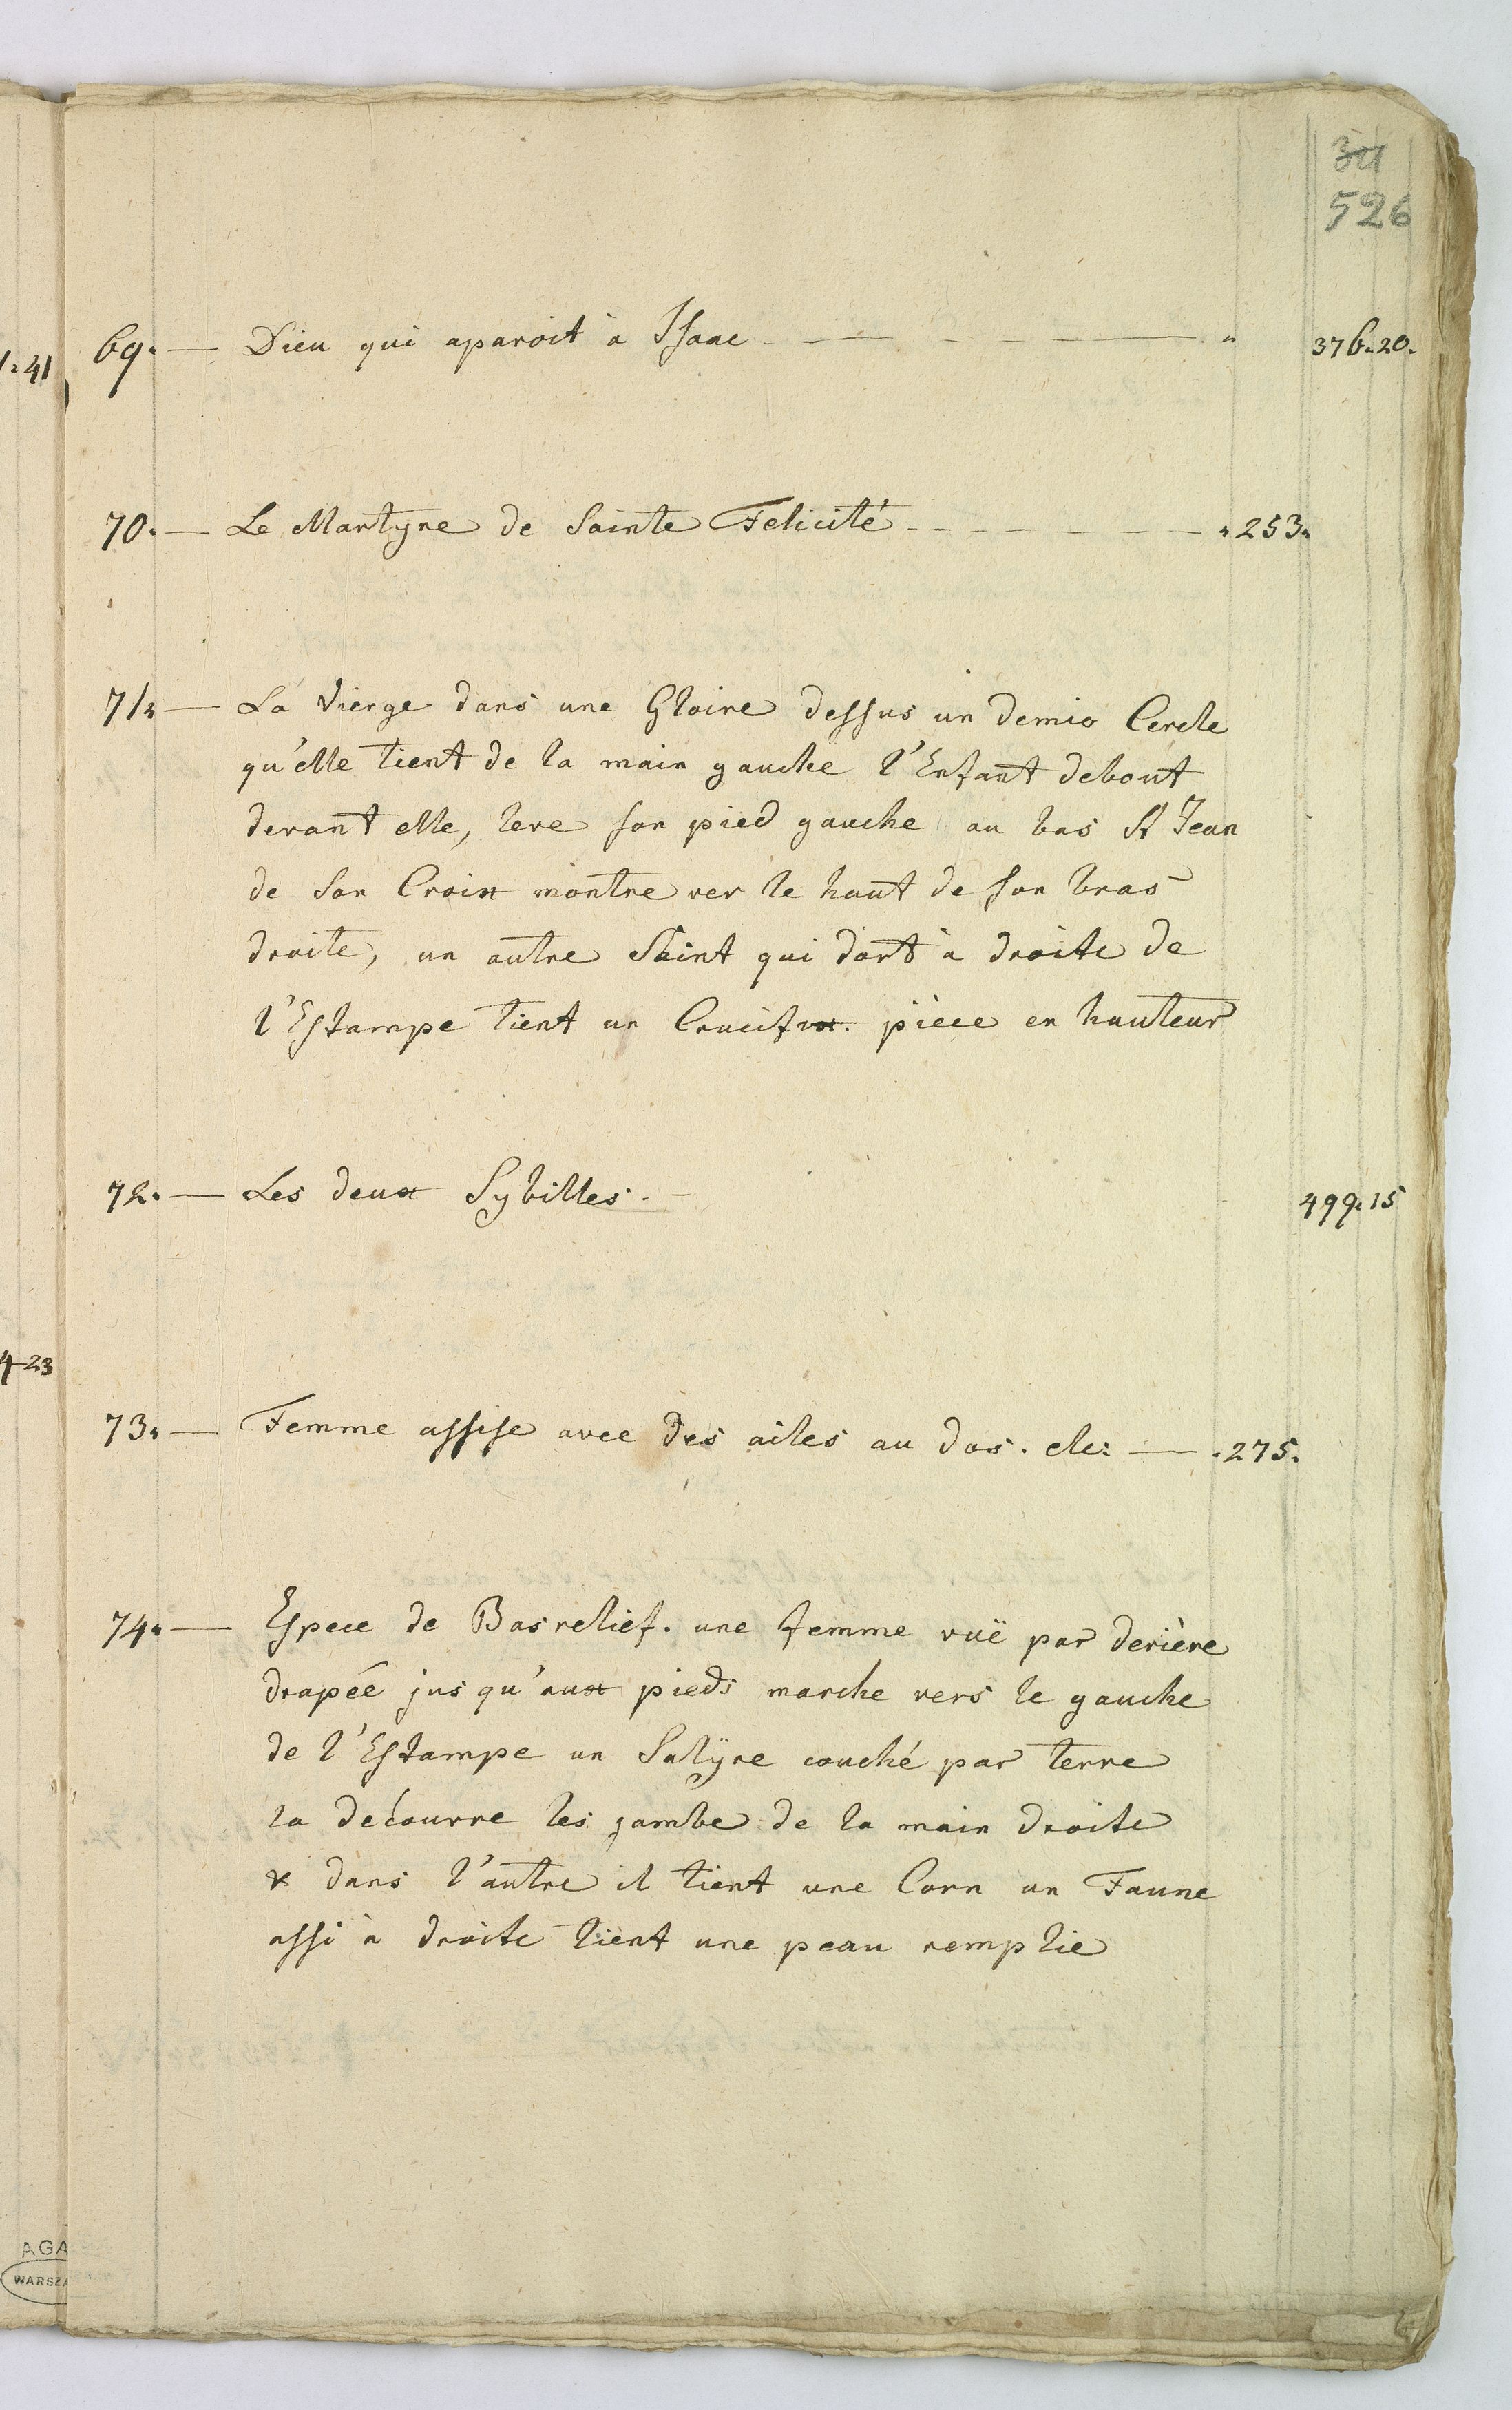 34
526
1.41
69. — Dieu qui aparoit à Isaac - — - - — " 376.20.
70. — Le Martyre de Sainte Felicité - - - - - - " 253 "
71. — La Vierge dans une Gloire dessus un demio Cercle
qu'elle tient de la main gauche l'Enfant debout
devant elle, leve son pied gauche au bas St Jean
de son Croix montre ver le haut de son bras
droite, un autre Saint qui dort à droite de
l'Estampe tient un Crucifix. pièce en hauteur
72. — Les deux Sybilles. - 499.15
4-23
73. — Femme assise avec des ailes au dos. etc: — . 275.
74. — Espece de Basrelief. une femme vuë par derière
drapéé jusqu'aux pieds marche vers le gauche
de l'Estampe un Satÿre couché par terre
la découvre les jambe de la main droite
& dans l'autre il tient une Corn un Faune
assi à droite tient une peau remplie
AGA
WARSZA